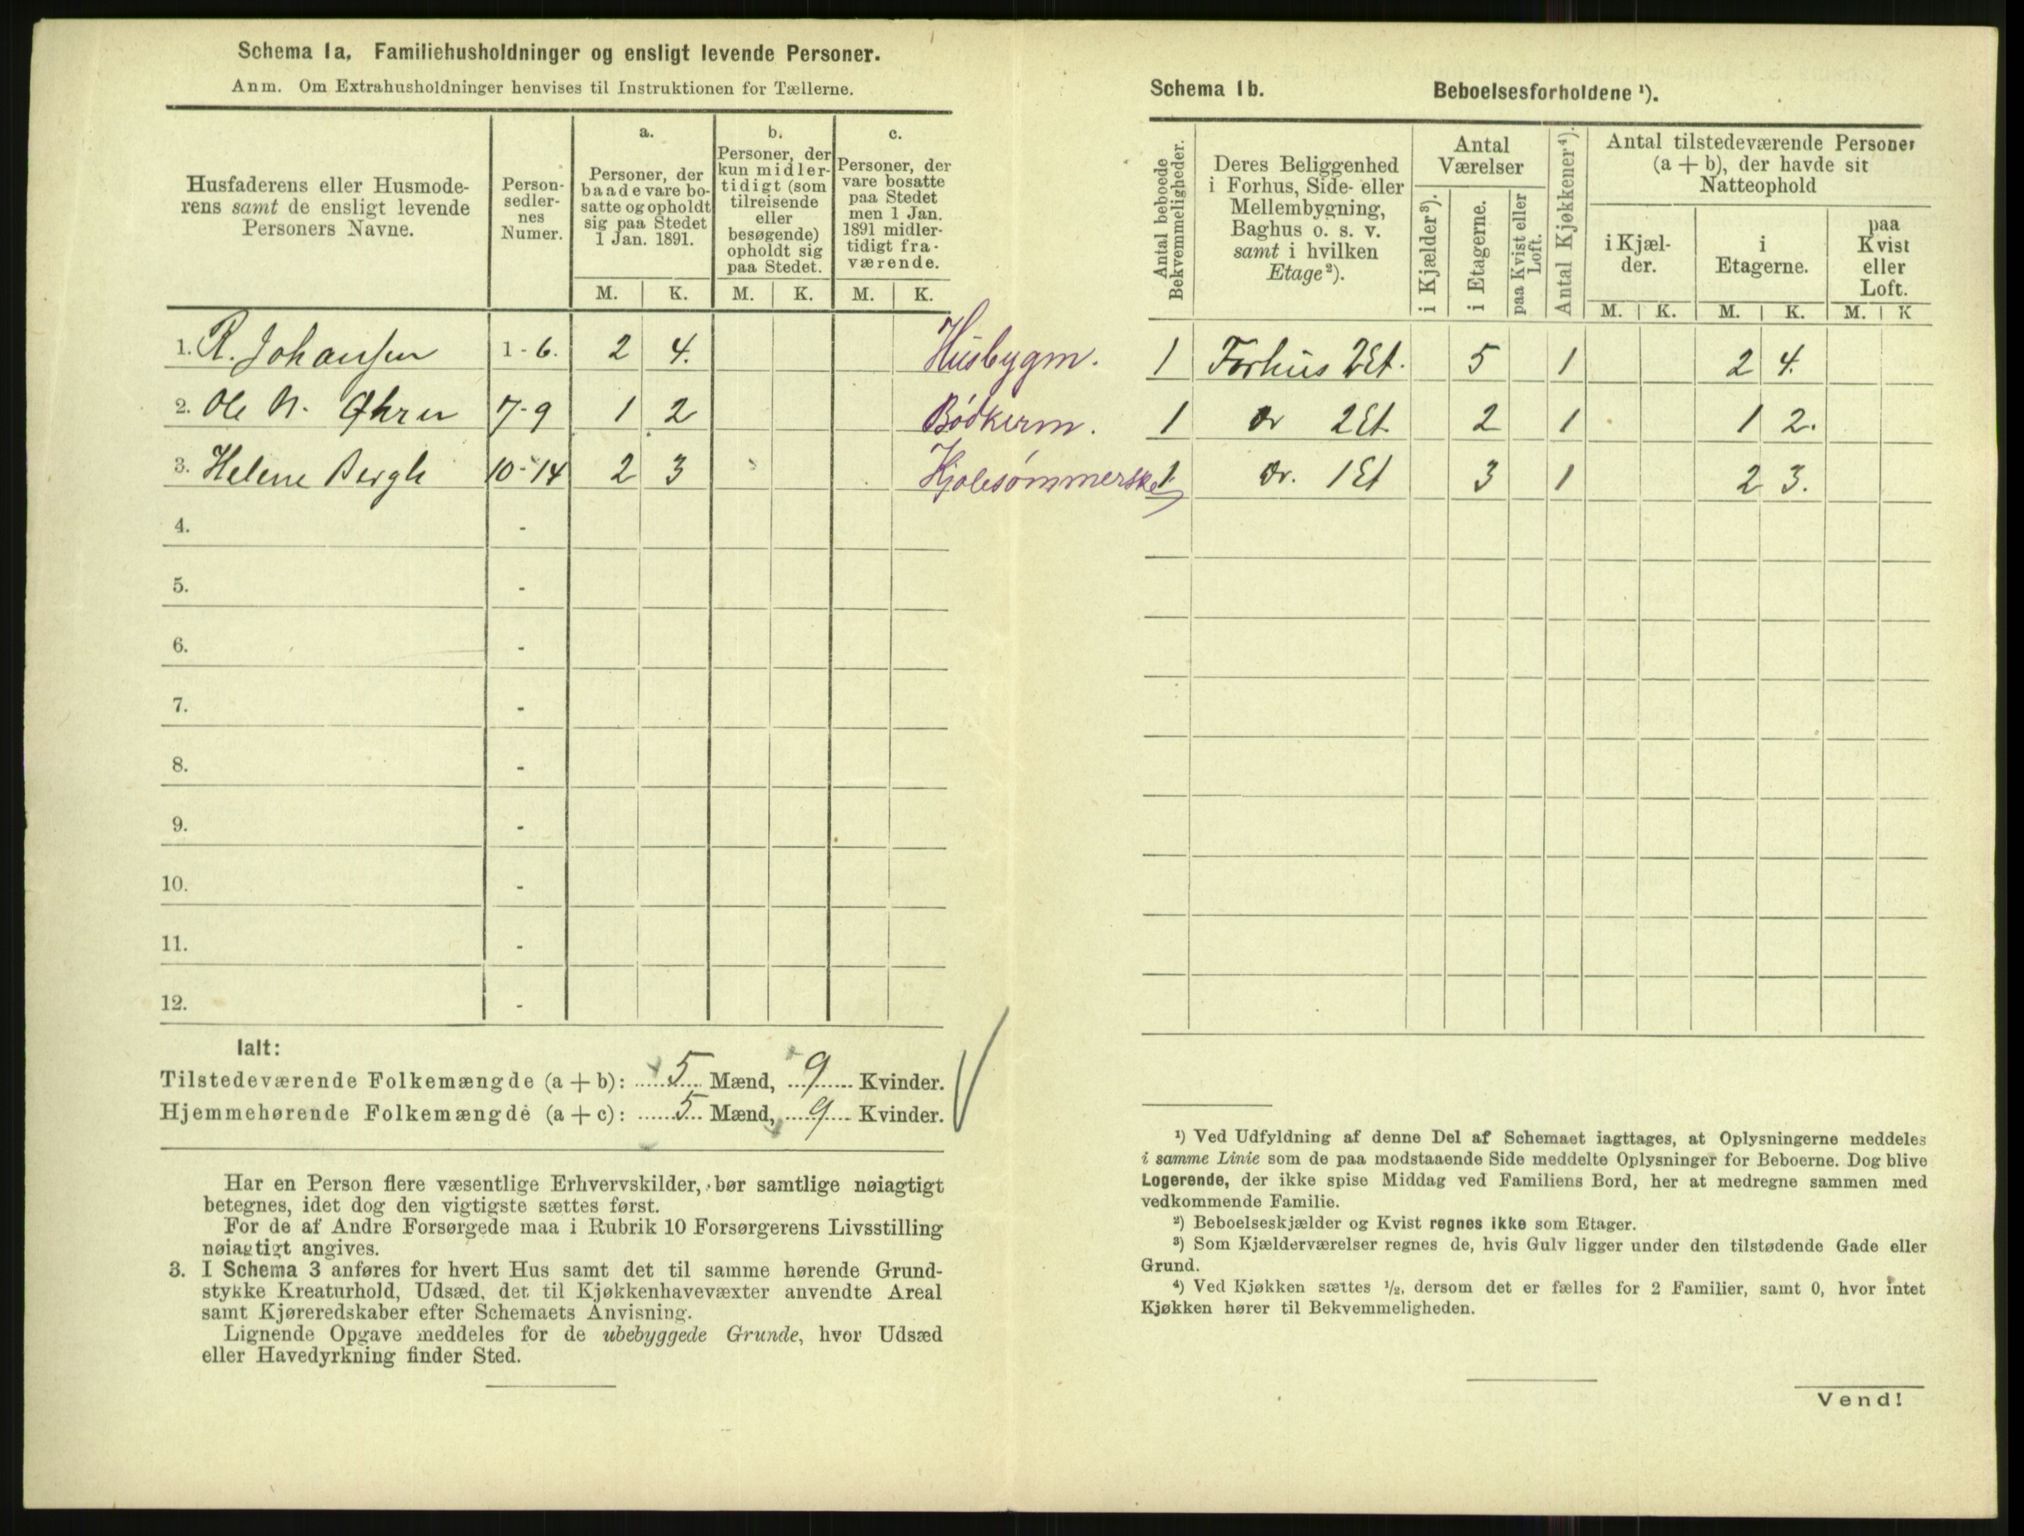 Schema 1a. Familiehusholdninger og ensligt levende Personer.
Anm. Om Extrahusholdninger henvises til Instruktionen for Tællerne.
Husfaderens eller Husmoderens samt de ensligt levende Personers Navne.
Person-sedlernes Numer.
a. Personer, der baade vare bosatte og opholdt sig paa Stedet 1 Jan. 1891.
b. Personer, der kun midlertidigt (som tilreisende eller besøgende) opholdt sig paa Stedet.
c. Personer, der vare bosatte paa Stedet men 1 Jan. 1891 midlertidigt fraværende.
M. K. M. K. M. K.
1. R. Johansen 1-6. 2 4. Husbygm.
2. Ole N. Øhren 7-9 1 2 Bödkerm.
3. Helene Bergh 10-14 2 3 Kjolesømmerske
4. -
5. -
6. -
7. -
8. -
9. -
10. -
11. -
12. -
Ialt:
Tilstedeværende Folkemængde (a + b): 5 Mænd, 9 Kvinder.
Hjemmehørende Folkemængde (a + c): 5 Mænd, 9 Kvinder.
Har en Person flere væsentlige Erhvervskilder, bør samtlige nøiagtigt
betegnes, idet dog den vigtigste sættes først.
For de af Andre Forsørgede maa i Rubrik 10 Forsørgerens Livsstilling
nøiagtigt angives.
3. I Schema 3 anføres for hvert Hus samt det til samme hørende Grund-
stykke Kreaturhold, Udsæd, det til Kjøkkenhavevæxter anvendte Areal
samt Kjøreredskaber efter Schemaets Anvisning.
Lignende Opgave meddeles for de ubebyggede Grunde, hvor Udsæd
eller Havedyrkning finder Sted.
Schema 1b. Beboelsesforholdene ¹).
Antal beboede Bekvemmeligheder.
Deres Beliggenhed i Forhus, Side- eller Mellembygning, Baghus o. s. v. samt i hvilken Etage²).
Antal Værelser
i Kjælder³).
i Etagerne.
paa Kvist eller Loft.
Antal Kjøkkener⁴).
Antal tilstedeværende Personer (a + b), der havde sit Natteophold
i Kjælder.
i Etagerne.
paa Kvist eller Loft.
M. K. M. K. M. K
1 Forhus 2 Et. 5 1 2 4.
1 do 2 Et. 2 1 1 2.
1 do. 1 Et 3 1 2 3.
¹) Ved Udfyldning af denne Del af Schemaet iagttages, at Oplysningerne meddeles
i samme Linie som de paa modstaaende Side meddelte Oplysninger for Beboerne. Dog blive
Logerende, der ikke spise Middag ved Familiens Bord, her at medregne sammen med
vedkommende Familie.
²) Beboelseskjælder og Kvist regnes ikke som Etager.
³) Som Kjælderværelser regnes de, hvis Gulv ligger under den tilstødende Gade eller
Grund.
⁴) Ved Kjøkken sættes ½, dersom det er fælles for 2 Familier, samt 0, hvor intet
Kjøkken hører til Bekvemmeligheden.
Vend!